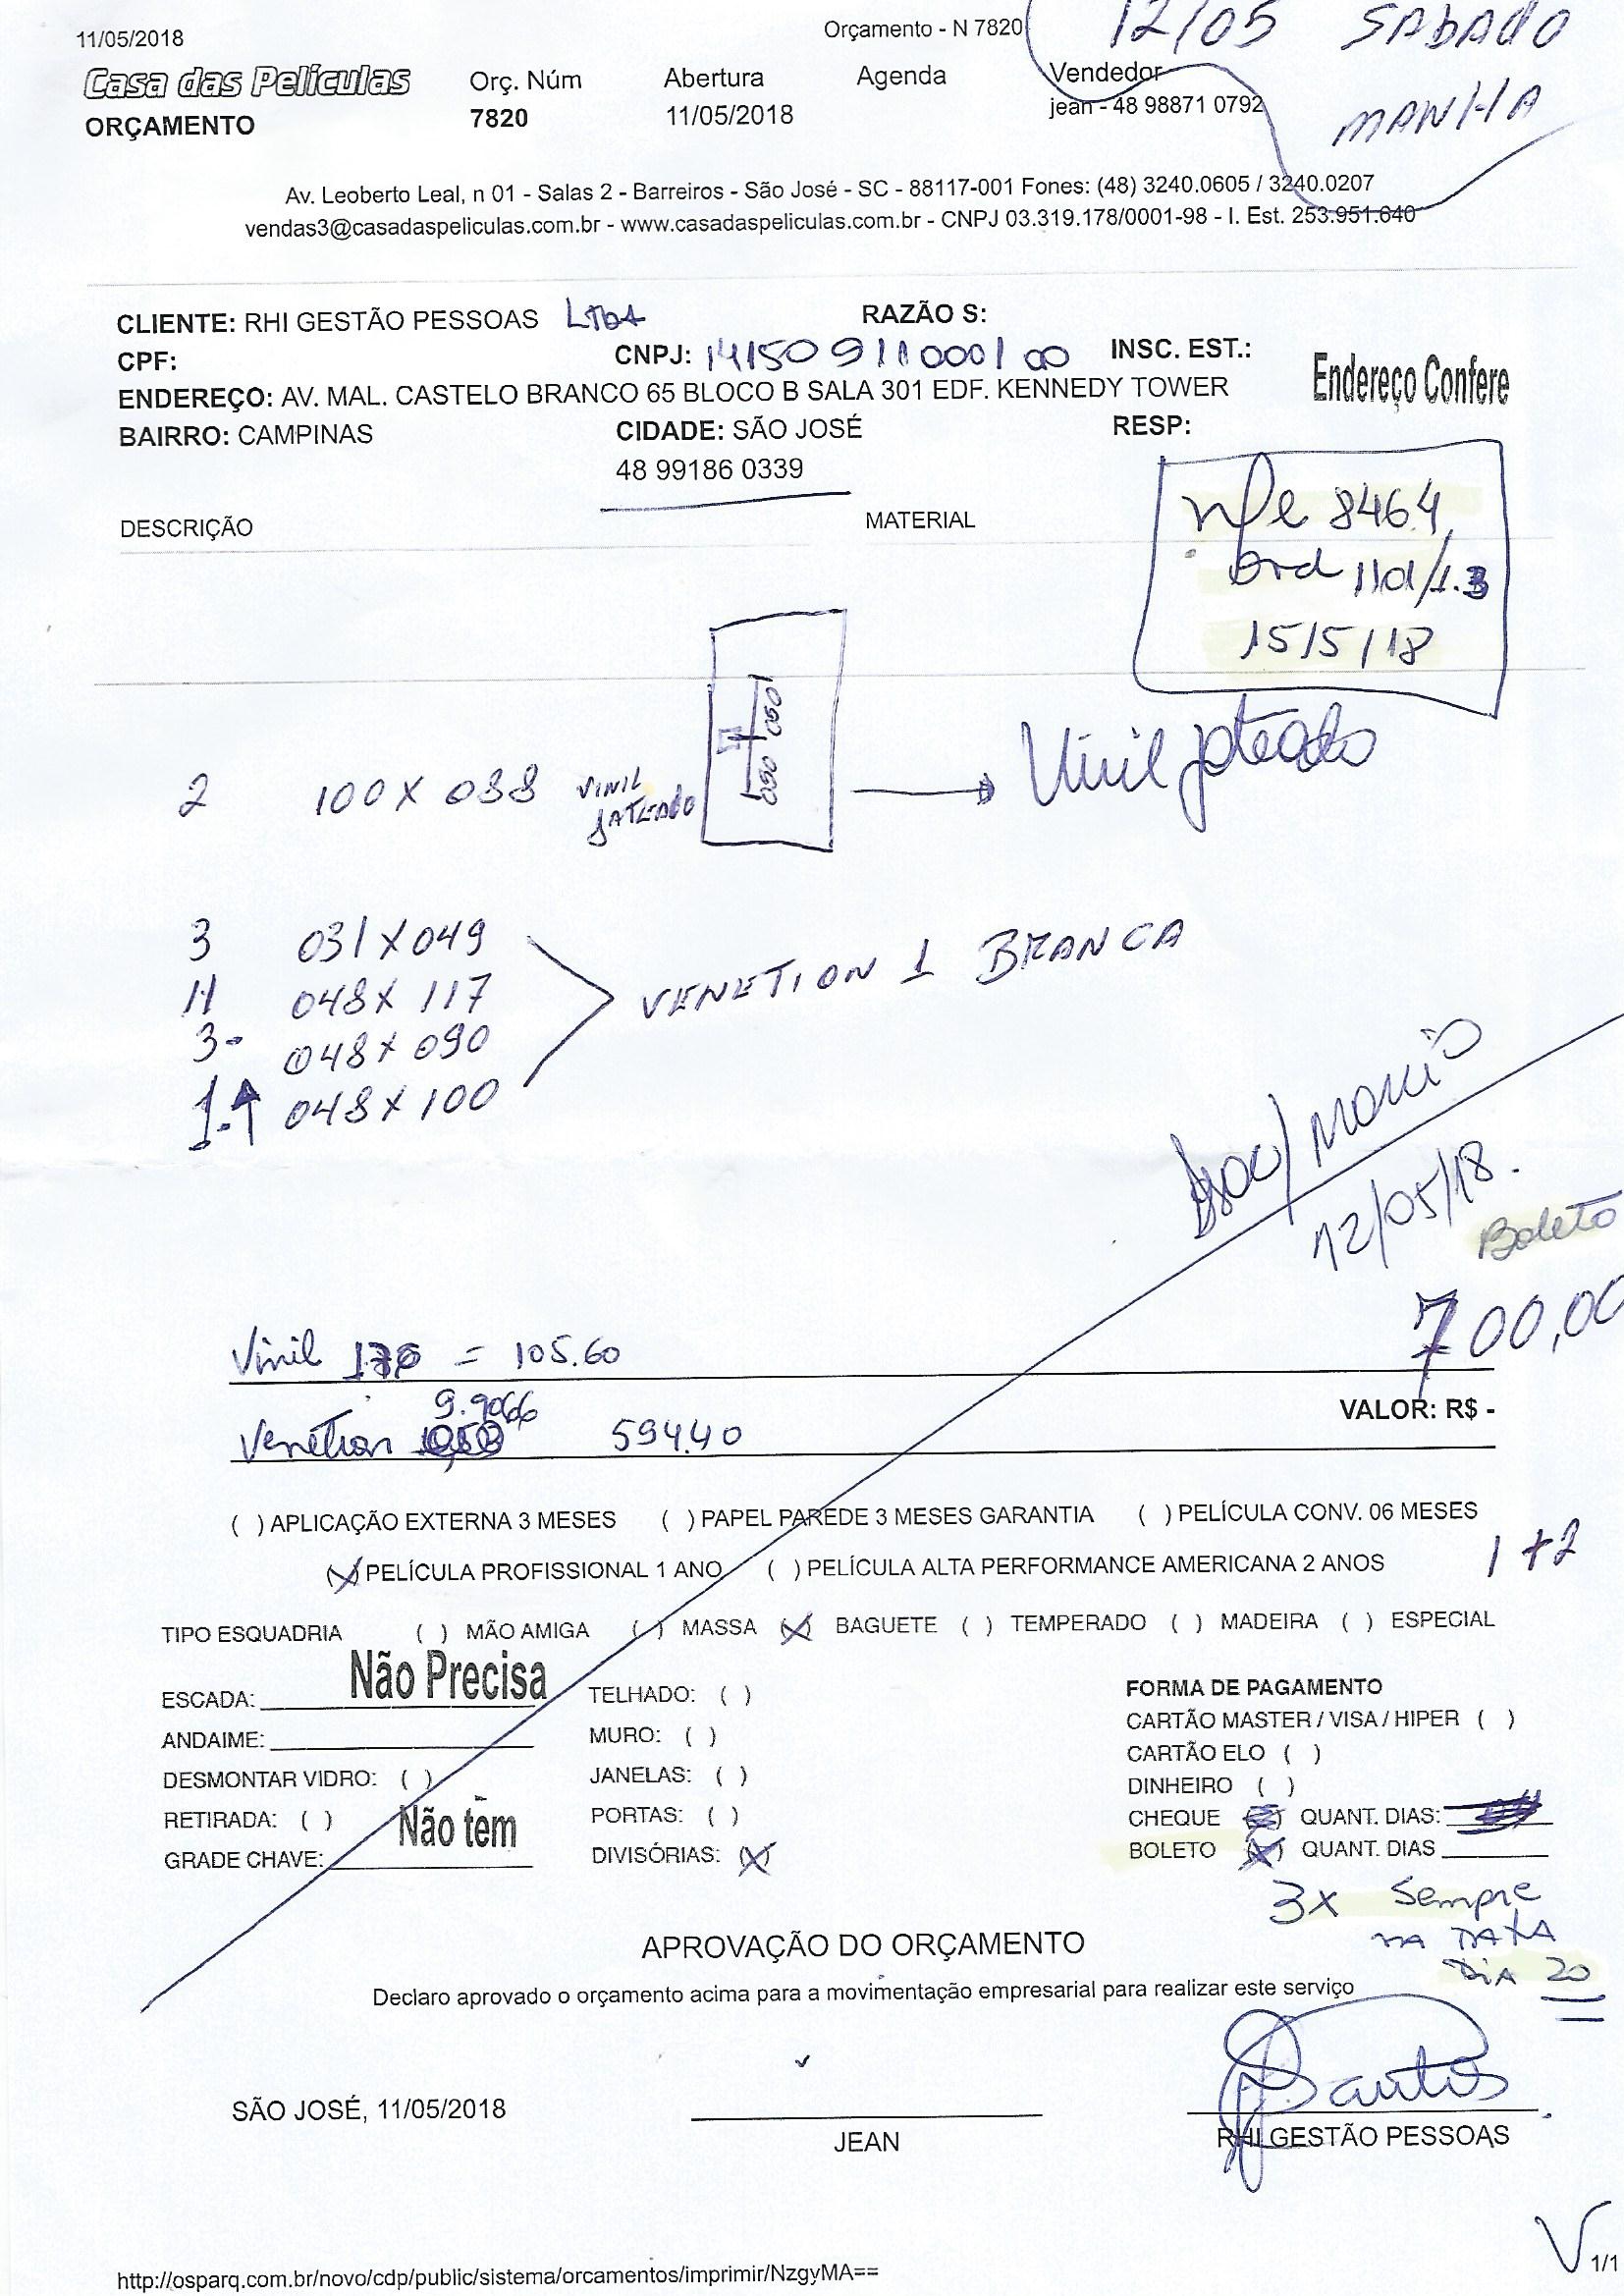 11/05/2018 Orçamento - N 7820 12/05 SABADO
MANHA
Casa das Películas Orç. Núm Abertura Agenda Vendedor
ORÇAMENTO 7820 11/05/2018 jean - 48 98871 0792
Av. Leoberto Leal, n 01 - Salas 2 - Barreiros - São José - SC - 88117-001 Fones: (48) 3240.0605 / 3240.0207
vendas3@casadaspeliculas.com.br - www.casadaspeliculas.com.br - CNPJ 03.319.178/0001-98 - I. Est. 253.951.640
CLIENTE: RHI GESTÃO PESSOAS LTDA RAZÃO S:
CPF: CNPJ: 14150911000100 INSC. EST.:
Endereço Confere
ENDEREÇO: AV. MAL. CASTELO BRANCO 65 BLOCO B SALA 301 EDF. KENNEDY TOWER
BAIRRO: CAMPINAS CIDADE: SÃO JOSÉ RESP:
48 99186 0339
DESCRIÇÃO MATERIAL
nfe 8464
15/5/18
050 050
2 100 X 088 VINIL JATEADO Vinil jateado
3 031 X 049
11 048 X 117
3- 048 X 090
1- 048 X 100
VENETION 1 BRANCA
12/05/18.
Boleto
700,00
Vinil = 105.60
VALOR: R$ -
9.9066
Venetian 594.40
( ) APLICAÇÃO EXTERNA 3 MESES ( ) PAPEL PAREDE 3 MESES GARANTIA ( ) PELÍCULA CONV. 06 MESES
(X) PELÍCULA PROFISSIONAL 1 ANO ( ) PELÍCULA ALTA PERFORMANCE AMERICANA 2 ANOS 1+2
TIPO ESQUADRIA ( ) MÃO AMIGA ( ) MASSA (X) BAGUETE ( ) TEMPERADO ( ) MADEIRA ( ) ESPECIAL
ESCADA: Não Precisa TELHADO: ( ) FORMA DE PAGAMENTO
CARTÃO MASTER / VISA / HIPER ( )
ANDAIME: MURO: ( )
CARTÃO ELO ( )
DESMONTAR VIDRO: ( ) JANELAS: ( ) DINHEIRO ( )
RETIRADA: ( ) PORTAS: ( ) CHEQUE QUANT. DIAS:
GRADE CHAVE: Não tem DIVISÓRIAS: (X) BOLETO (X) QUANT. DIAS
3X Sempre
NA DATA
DIA 20
APROVAÇÃO DO ORÇAMENTO
Declaro aprovado o orçamento acima para a movimentação empresarial para realizar este serviço
Santos
SÃO JOSÉ, 11/05/2018
JEAN RHI GESTÃO PESSOAS
http://osparq.com.br/novo/cdp/public/sistema/orcamentos/imprimir/NzgyMA== 1/1